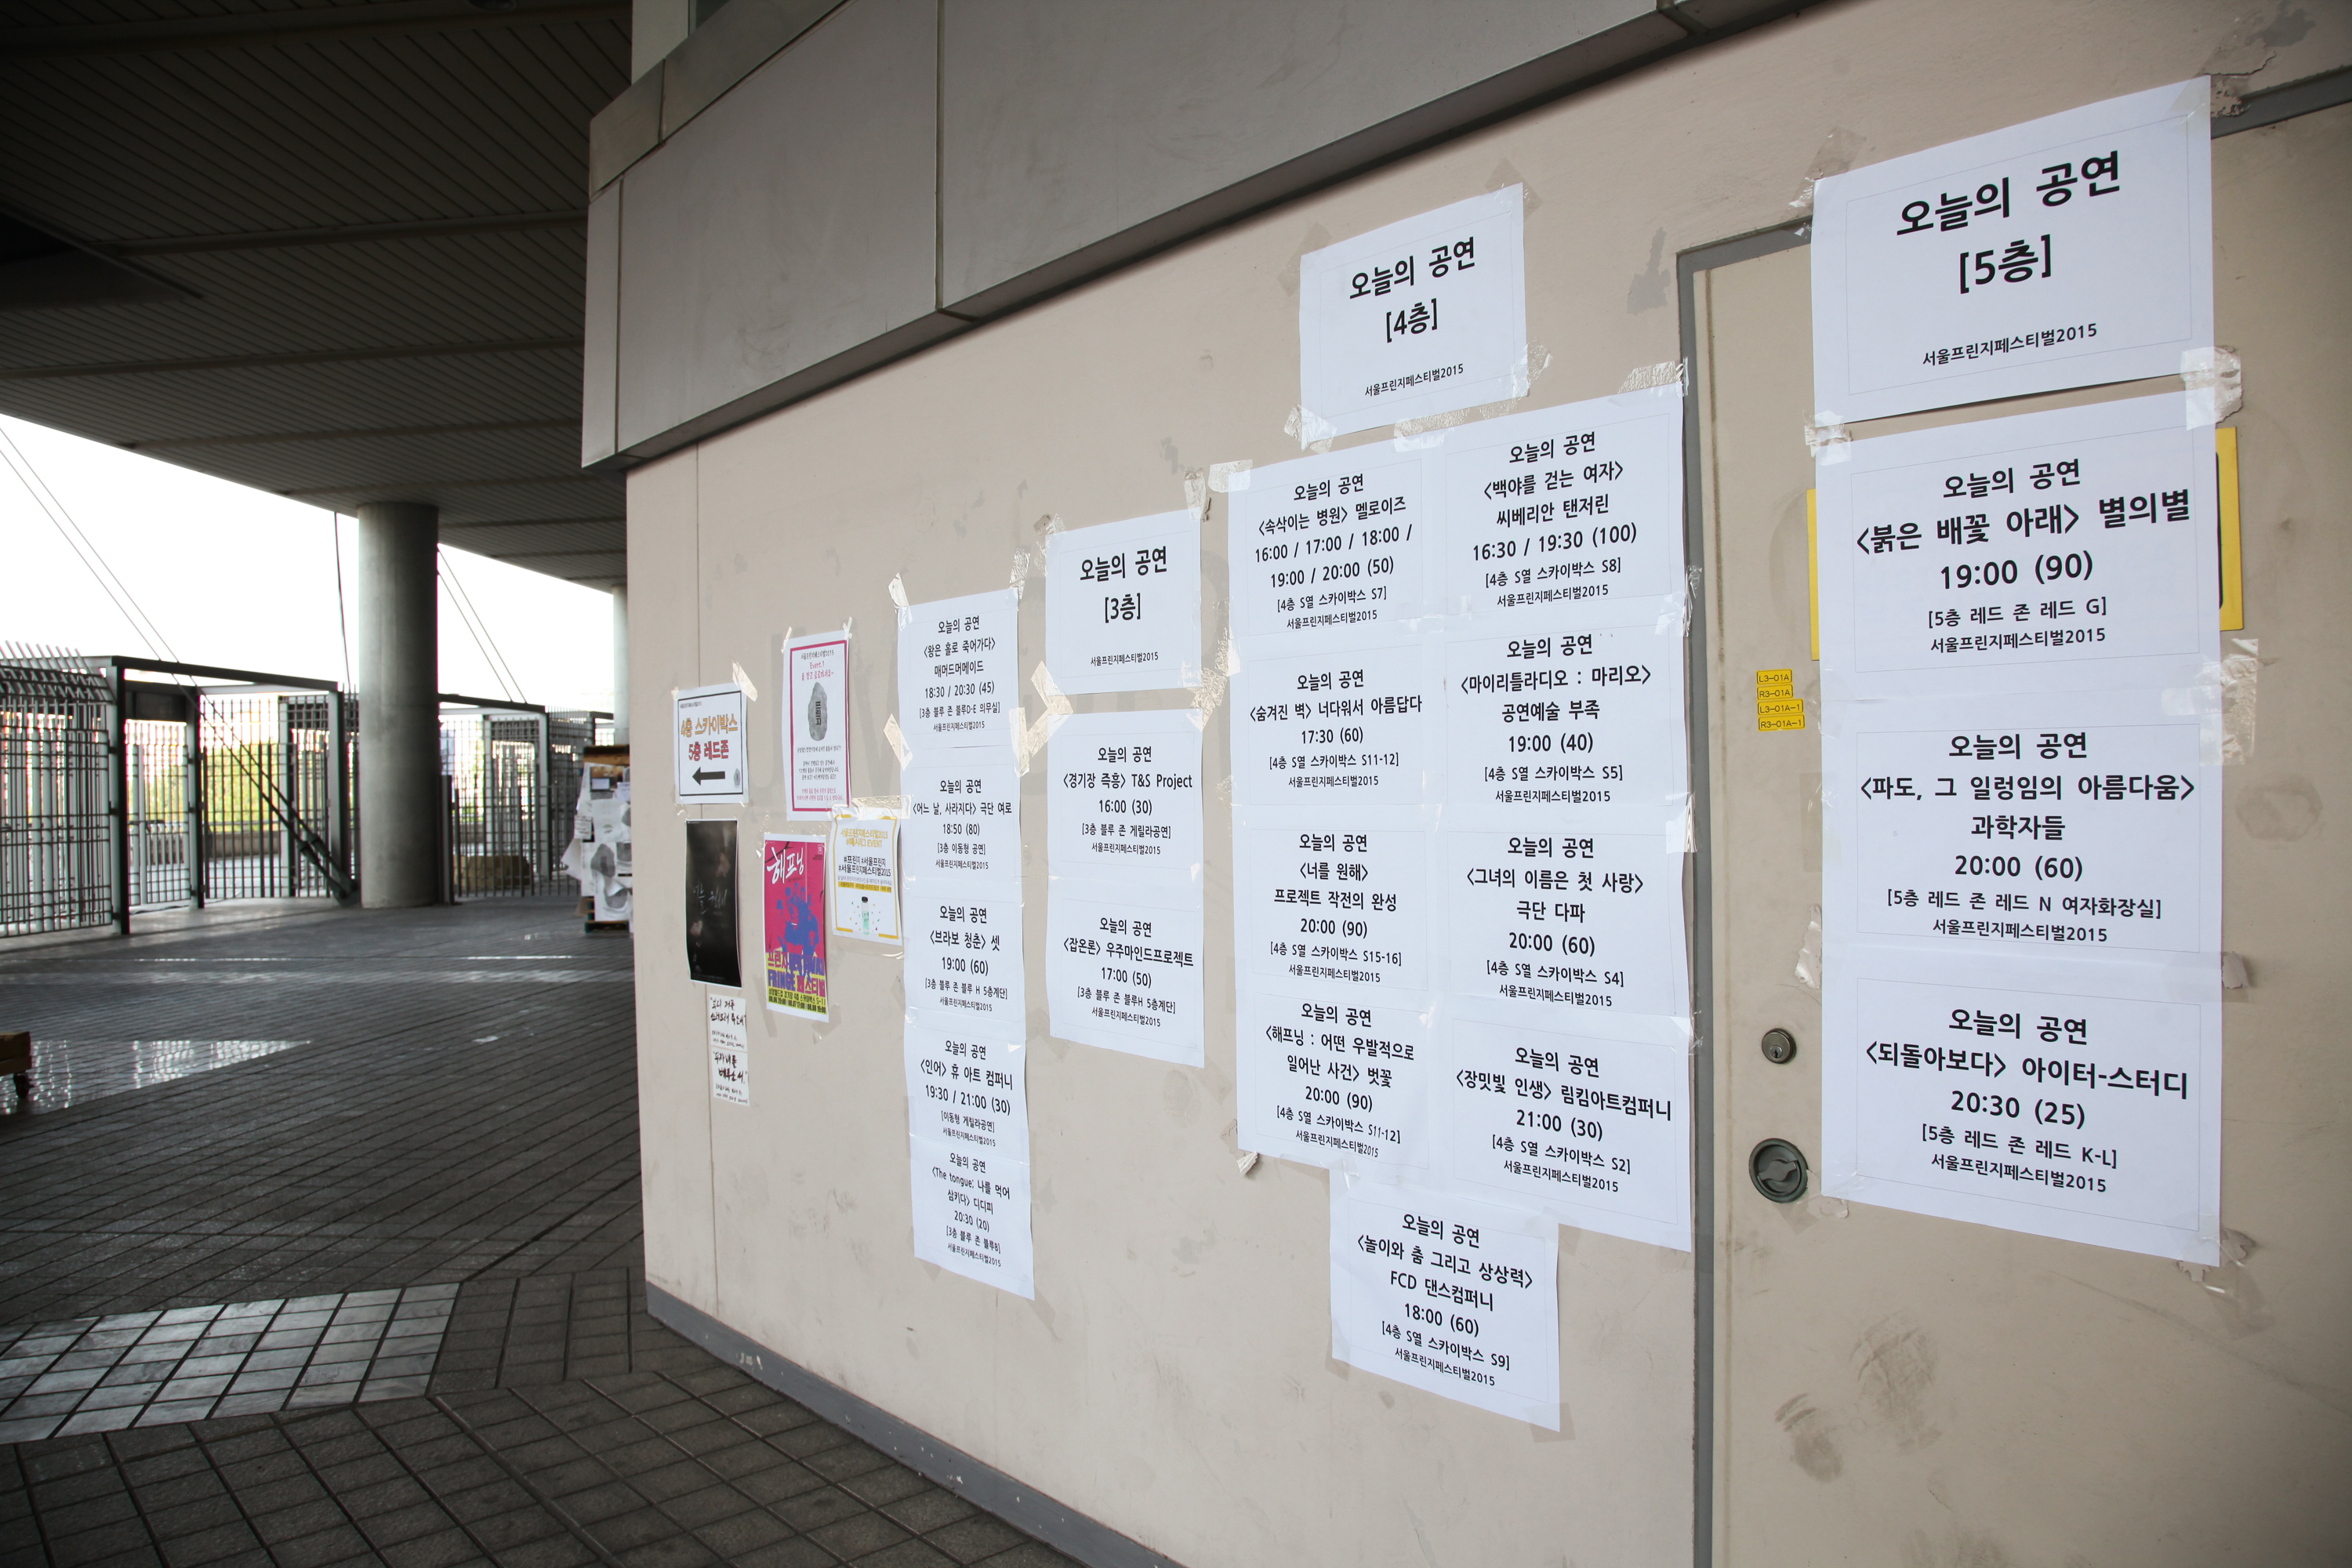 4층 스카이박스
5층 레드존
Event.1
해프닝
FRINGE 페스티벌
#프린지 #서울프린지
#서울프린지페스티벌2015
오늘의 공연
<왕은 홀로 죽어가다>
매머드머메이드
18:30 / 20:30 (45)
[3층 블루 존 블루D-E 의무실]
서울프린지페스티벌2015
오늘의 공연
<어느 날, 사라지다> 극단 여로
18:50 (80)
[3층 이동형 공연]
서울프린지페스티벌2015
오늘의 공연
<브라보 청춘> 셋
19:00 (60)
[3층 블루 존 블루 H 5층계단]
서울프린지페스티벌2015
오늘의 공연
<인어> 휴 아트 컴퍼니
19:30 / 21:00 (30)
[이동형 게릴라공연]
서울프린지페스티벌2015
오늘의 공연
<The tongue: 나를 먹어
삼키다> 디디피
20:30 (20)
[3층 블루 존 블루B]
서울프린지페스티벌2015
오늘의 공연
[3층]
서울프린지페스티벌2015
오늘의 공연
<경기장 즉흥> T&S Project
16:00 (30)
[3층 블루 존 게릴라공연]
서울프린지페스티벌2015
오늘의 공연
<잡온론> 우주마인드프로젝트
17:00 (50)
[3층 블루 존 블루H 5층계단]
서울프린지페스티벌2015
오늘의 공연
[4층]
서울프린지페스티벌2015
오늘의 공연
<속삭이는 병원> 멜로이즈
16:00 / 17:00 / 18:00 /
19:00 / 20:00 (50)
[4층 S열 스카이박스 S7]
서울프린지페스티벌2015
오늘의 공연
<숨겨진 벽> 너다워서 아름답다
17:30 (60)
[4층 S열 스카이박스 S11-12]
서울프린지페스티벌2015
오늘의 공연
<너를 원해>
프로젝트 작전의 완성
20:00 (90)
[4층 S열 스카이박스 S15-16]
서울프린지페스티벌2015
오늘의 공연
<해프닝 : 어떤 우발적으로
일어난 사건> 벗꽃
20:00 (90)
[4층 S열 스카이박스 S11-12]
서울프린지페스티벌2015
오늘의 공연
<백야를 걷는 여자>
씨베리안 탠저린
16:30 / 19:30 (100)
[4층 S열 스카이박스 S8]
서울프린지페스티벌2015
오늘의 공연
<마이리틀라디오 : 마리오>
공연예술 부족
19:00 (40)
[4층 S열 스카이박스 S5]
서울프린지페스티벌2015
오늘의 공연
<그녀의 이름은 첫 사랑>
극단 다파
20:00 (60)
[4층 S열 스카이박스 S4]
서울프린지페스티벌2015
오늘의 공연
<장밋빛 인생> 림킴아트컴퍼니
21:00 (30)
[4층 S열 스카이박스 S2]
서울프린지페스티벌2015
오늘의 공연
<놀이와 춤 그리고 상상력>
FCD 댄스컴퍼니
18:00 (60)
[4층 S열 스카이박스 S9]
서울프린지페스티벌2015
L3-01A
R3-01A
L3-01A-1
R3-01A-1
오늘의 공연
[5층]
서울프린지페스티벌2015
오늘의 공연
<붉은 배꽃 아래> 별의별
19:00 (90)
[5층 레드 존 레드 G]
서울프린지페스티벌2015
오늘의 공연
<파도, 그 일렁임의 아름다움>
과학자들
20:00 (60)
[5층 레드 존 레드 N 여자화장실]
서울프린지페스티벌2015
오늘의 공연
<되돌아보다> 아이터-스터디
20:30 (25)
[5층 레드 존 레드 K-L]
서울프린지페스티벌2015